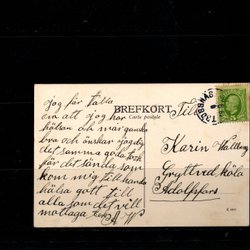 jag får tala
om att jag har
hälsan och mår ganska
bra och önskar jag dig
det samma goda
för det lända som
kom mig till
hälsa gott till
alla som det vill
mottaga A. W
BREFKORT.
Carte postale
Till
Karin Wallberg
Gryttved
Adolfsfors